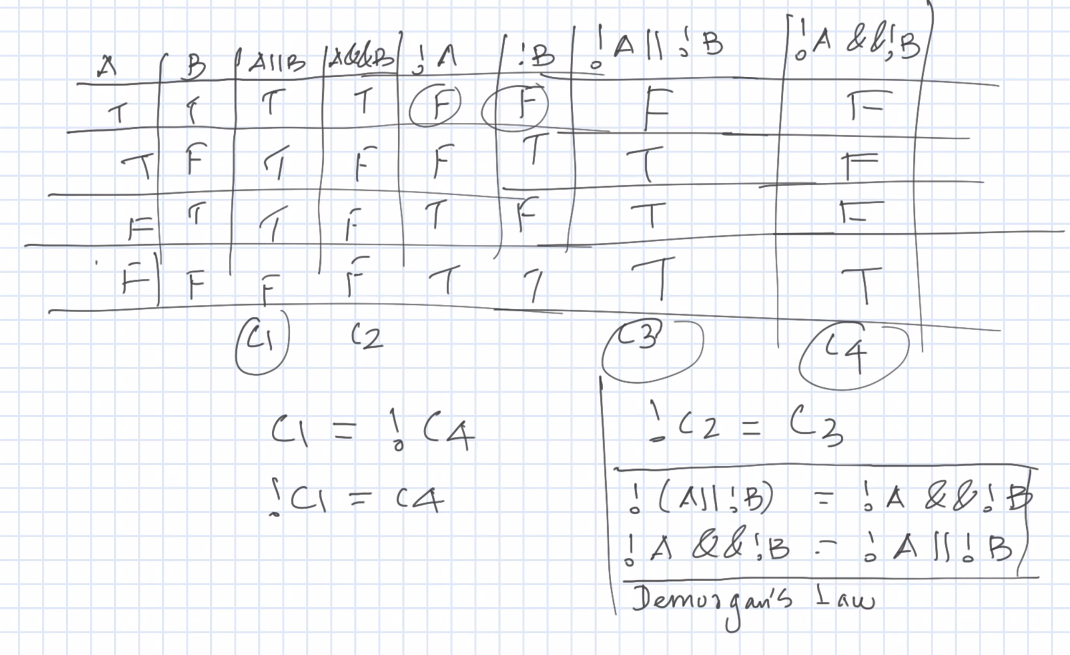 A B A||B A&&B !A !B !A || !B !A &&!B
T T T T F F F F
T F T F F T T F
F T T F T F T F
F F F F T T T T
C1 C2 C3 C4
C1 = !C4
!C2 = C3
!C1 = C4
!(A||!B) = !A &&!B
!A &&!B = !A||!B
Demorgan's Law